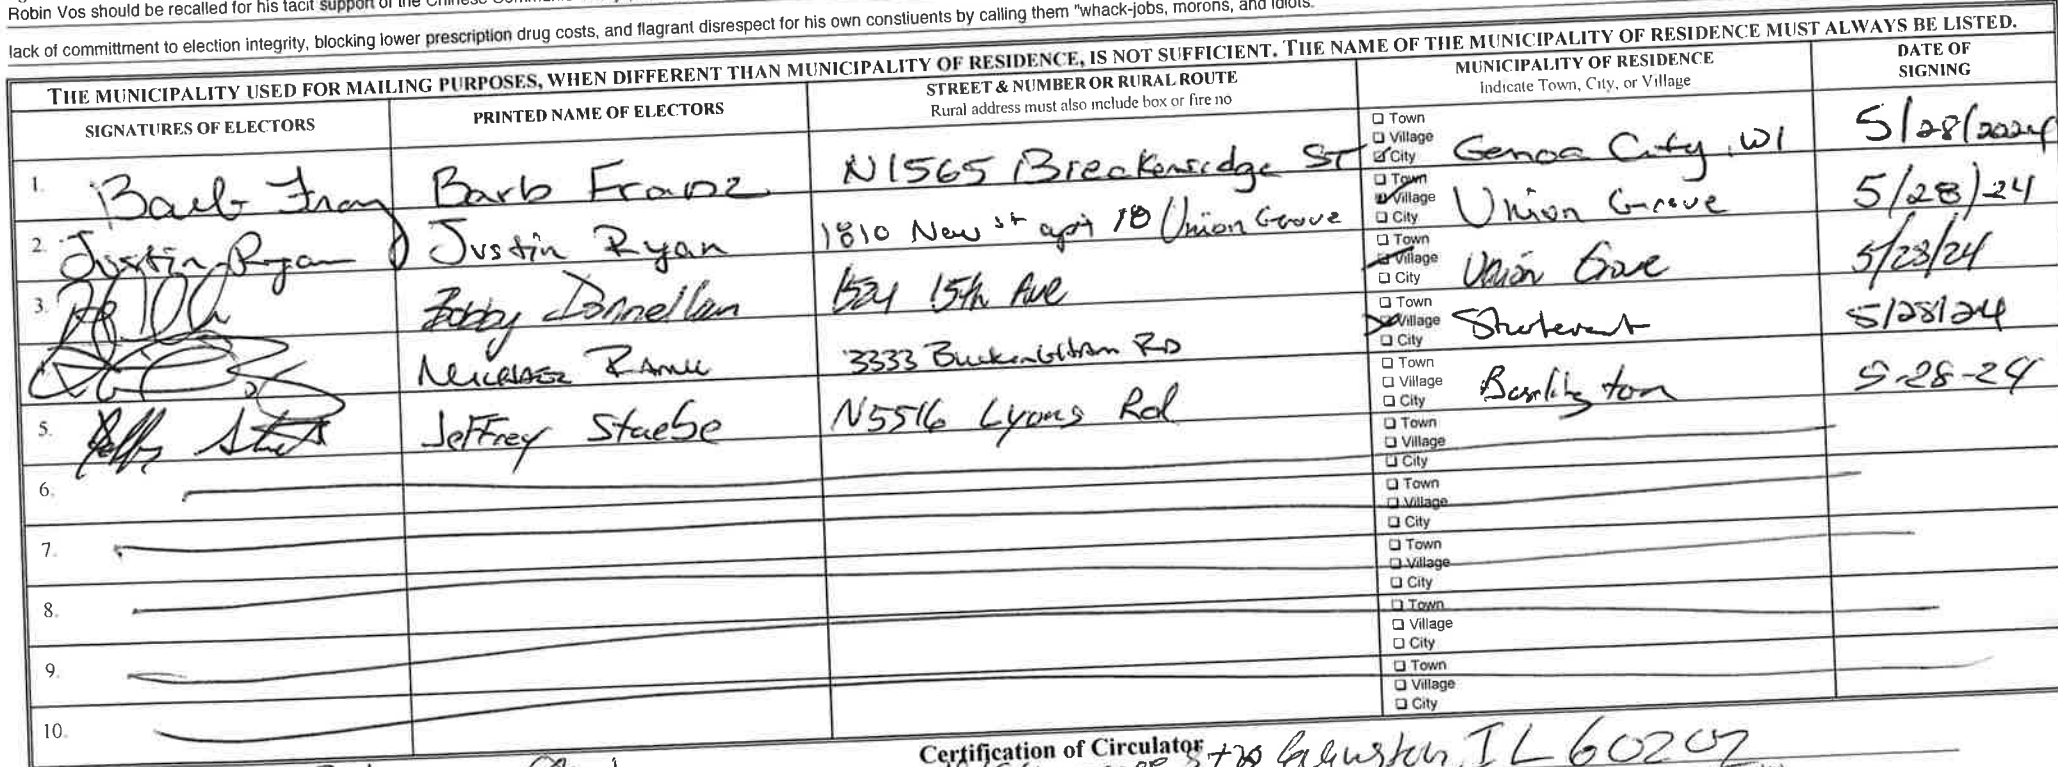 Robin Vos should be recalled for his tacit support of the Chinese
lack of committment to election integrity, blocking lower prescription drug costs, and flagrant disrespect for his own constiuents by calling them "whack-jobs, morons, and idiots.
THE MUNICIPALITY USED FOR MAILING PURPOSES, WHEN DIFFERENT THAN MUNICIPALITY OF RESIDENCE, IS NOT SUFFICIENT. THE NAME OF THE MUNICIPALITY OF RESIDENCE MUST ALWAYS BE LISTED.
SIGNATURES OF ELECTORS
PRINTED NAME OF ELECTORS
STREET & NUMBER OR RURAL ROUTE
Rural address must also include box or fire no
MUNICIPALITY OF RESIDENCE
Indicate Town, City, or Village
DATE OF
SIGNING
1. Barb Franz Barb Franz N1565 Breckenridge ST Town
Village
City Genoa City, WI 5/28/2024
2. Justin Ryan Justin Ryan 1810 New st apt 18 Union Grove Town
Village
City Union Grove 5/28/24
3. Bobby Donnellan 1524 15th Ave Town
Village
City Union Grove 5/28/24
3333 Rd Town
Village
City 5/28/24
5. Jeffrey Staebe N5516 Lyons Rd Town
Village
City Burlington 5-28-24
6. Town
Village
City
7. Town
Village
City
8. Town
Village
City
9. Town
Village
City
10. Town
Village
City
Certification of Circulator
IL 60202